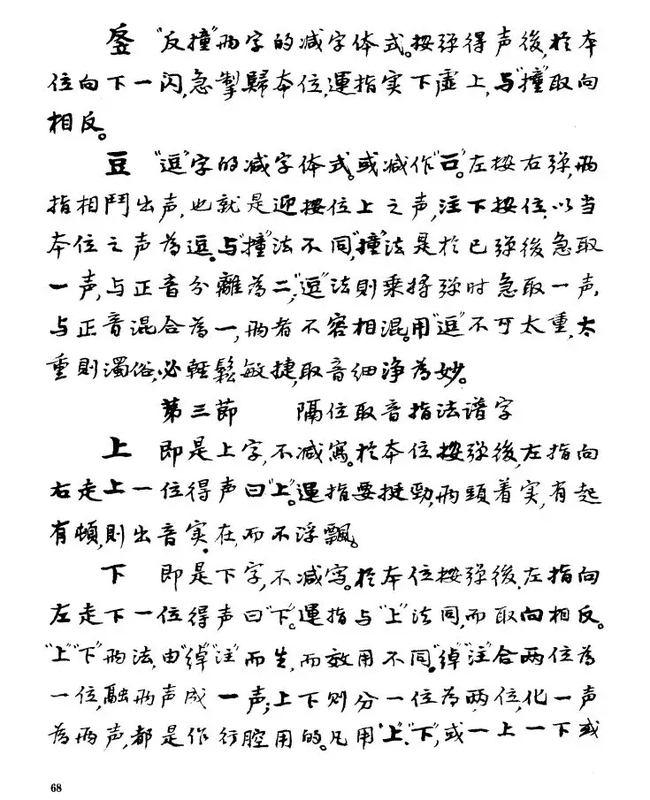 “反撞”两字的减字体式。按弹得声後,於本
位向下一闪,急掣歸本位,運指实下虚上,与“撞”取向
相反。
豆 “逗”字的减字体式。或减作“口”。左按右弹,两
指相鬥出声,也就是迎按位上之声,注下按位,以当
本位之声為逗。与“撞”法不同,“撞”法是於已弹後急取
一声,与正音分離為二,“逗”法则乘将弹时急取一声,
与正音混合為一,两者不容相混。用“逗”不可太重,太
重則濁俗,必輕鬆敏捷,取音细净為妙。
第三節 隔位取音指法谱字
上 即是上字,不减寫。於本位按弹後,左指向
右走上一位得声曰“上”。運指要挺勁,两頭着实,有起
有頓,則出音实在而不浮飄。
下 即是下字,不减写。於本位按弹後,左指向
左走下一位得声曰“下”。運指与“上”法同,而取向相反。
“上”“下”两法,由“绰”“注”而生,而效用不同。“绰”“注”合两位為
一位,融两声成一声;上下则分一位為两位,化一声
為两声,都是作行腔用的。凡用“上”、“下”,或一上一下或
68